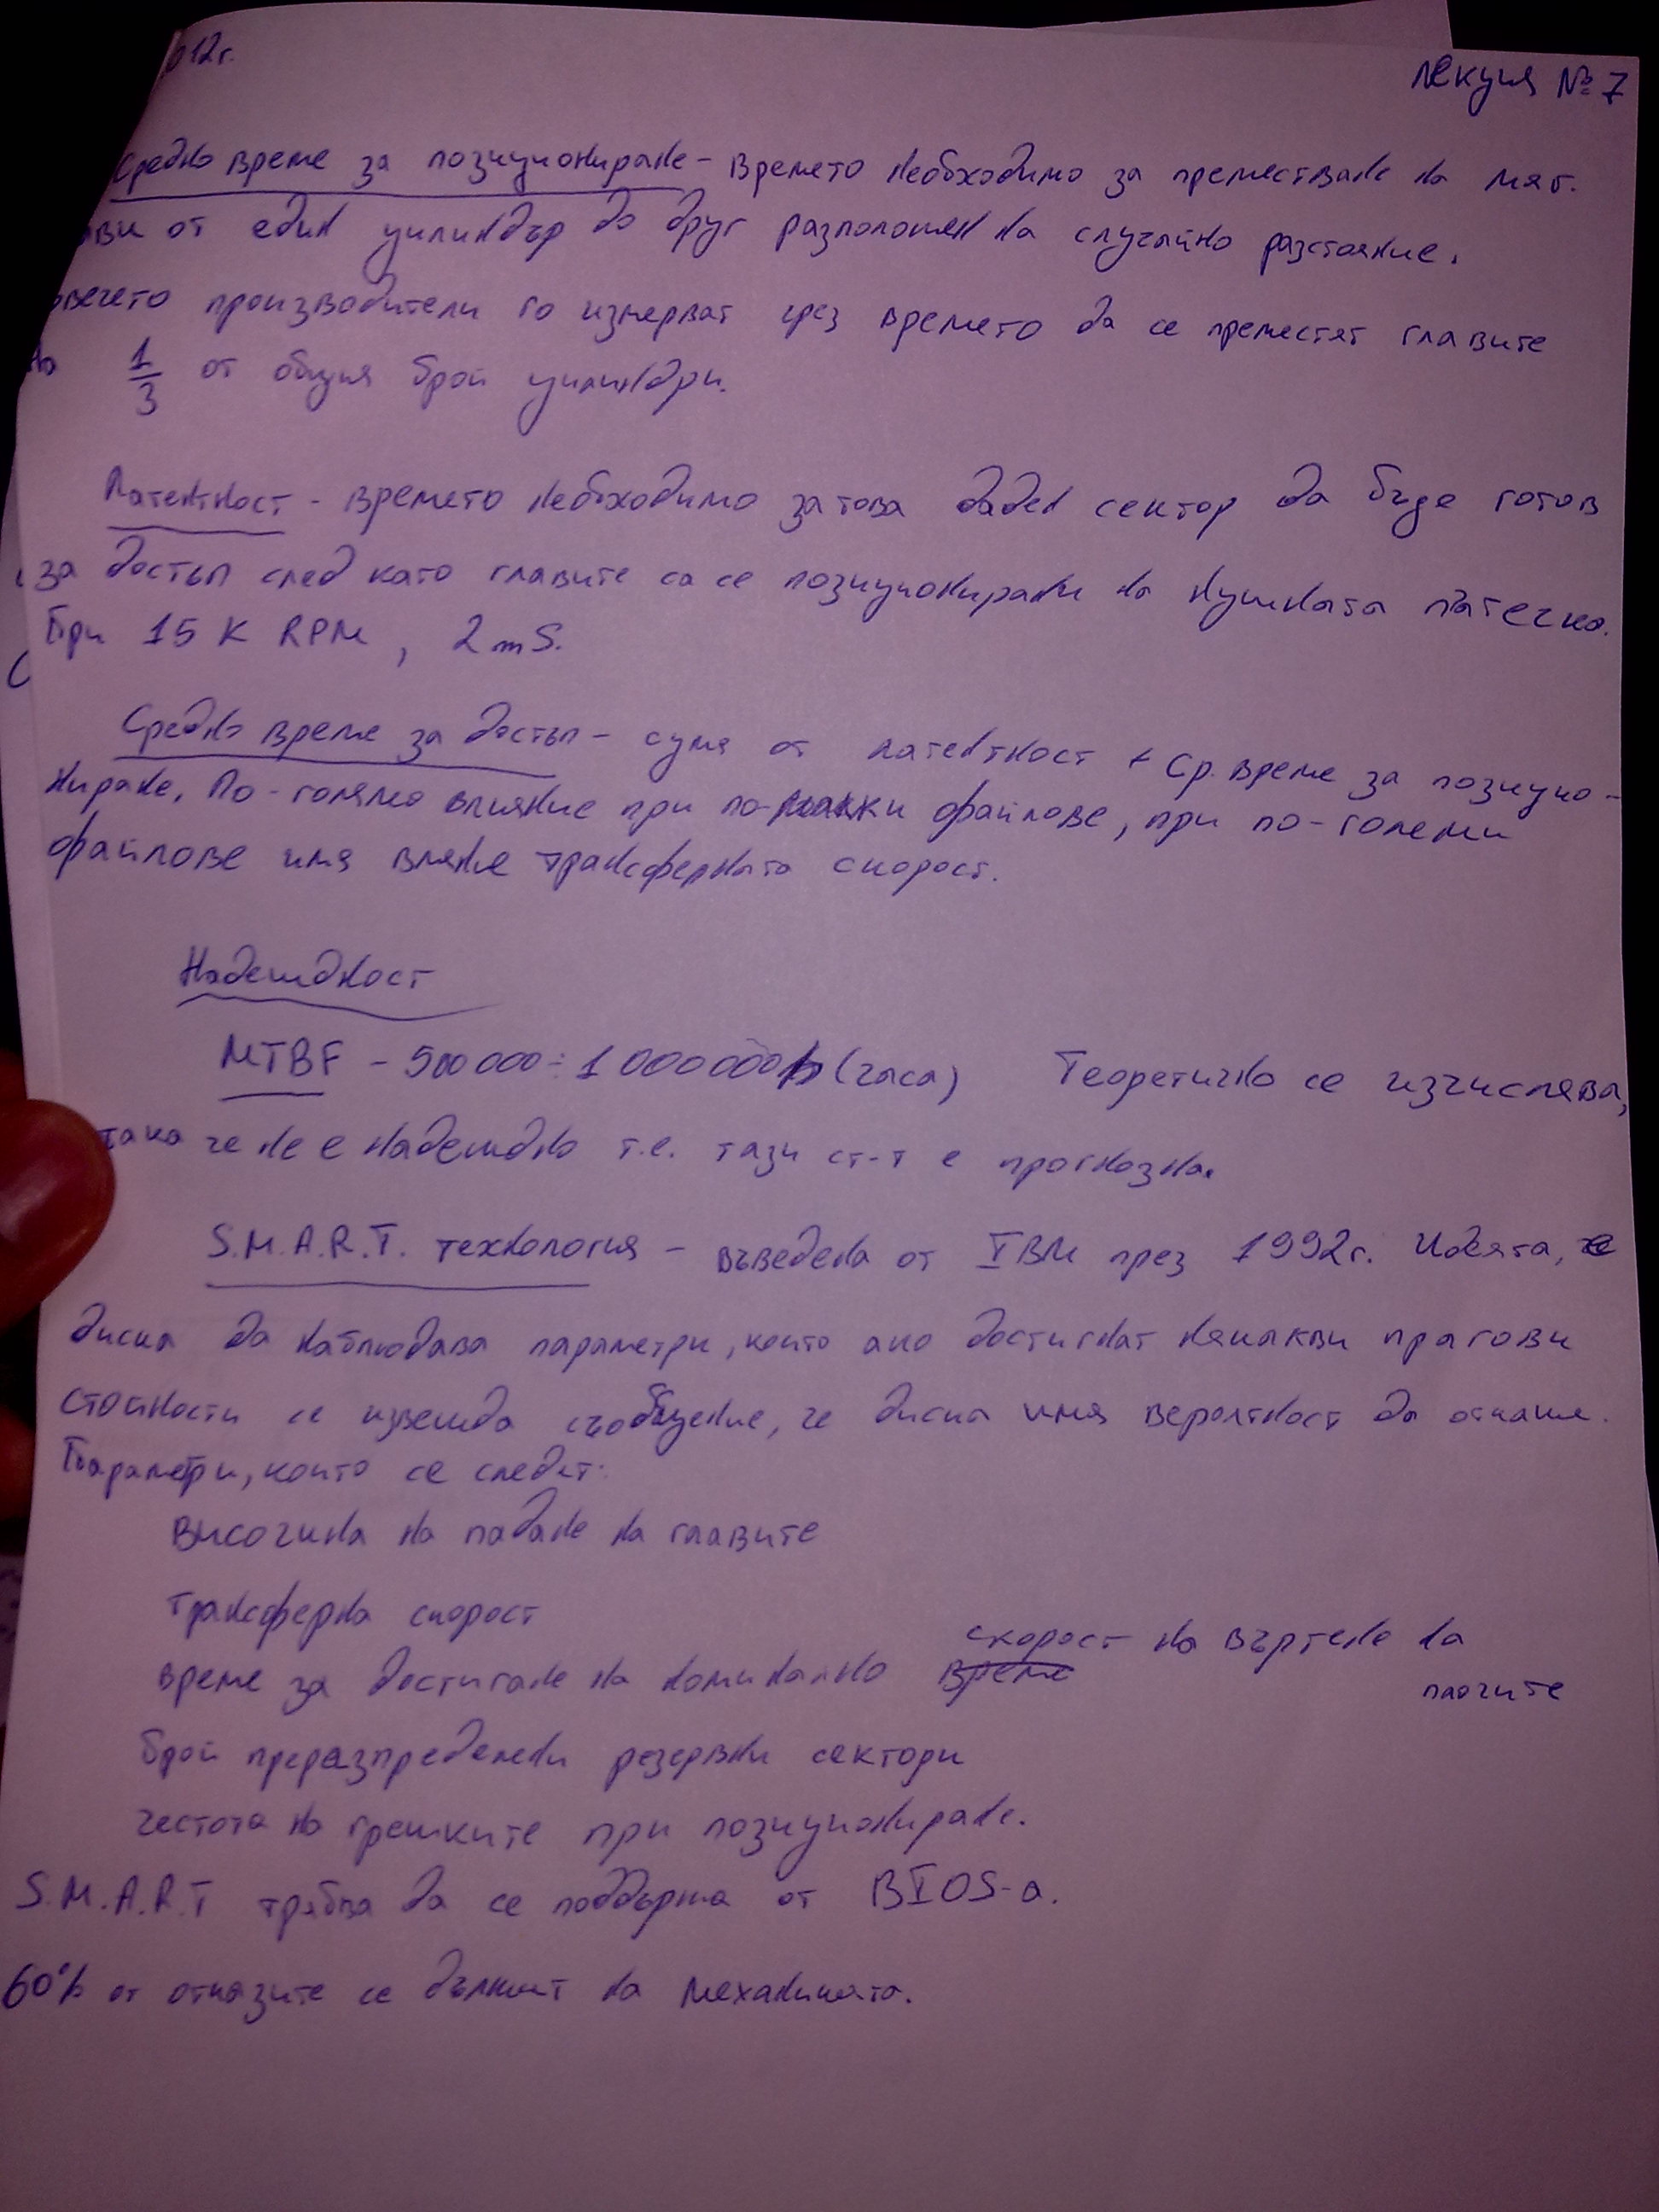 012г.
Лекция № 7
Средно време за позициониране - времето необходимо за преместване на маг.
ави от един цилиндър до друг разположен на случайно разстояние.
овечето производители го измерват чрез времето да се преместят главите
на 1/3 от общия брой цилиндри.
Латентност - времето необходимо за това даден сектор да бъде готов
за достъп след като главите са се позиционирани на нужната пътечка.
При 15 K RPM, 2 mS.
Средно време за достъп - сума от латентност + ср. време за позицио-
ниране. По-голямо влияние при по-малки файлове, при по-големи
файлове има влияние трансферната скорост.
Надеждност
MTBF - 500 000 ÷ 1 000 000 h (часа) Теоретично се изчислява,
така че не е надеждно т.е. тази ст-т е прогнозна.
S.M.A.R.T. технология - въведена от IBM през 1992г. Идеята, е
диска да наблюдава параметри, които ако достигнат някакви прагови
стойности се извежда съобщение, че диска има вероятност да откаже.
Параметри, които се следят:
височина на падане на главите
трансферна скорост
време за достигане на номинално време скорост на въртене на
плочите
брой преразпределени резервни сектори
честота на грешките при позициониране.
S.M.A.R.T трябва да се поддържа от BIOS-а.
60% от отказите се дължат на механиката.